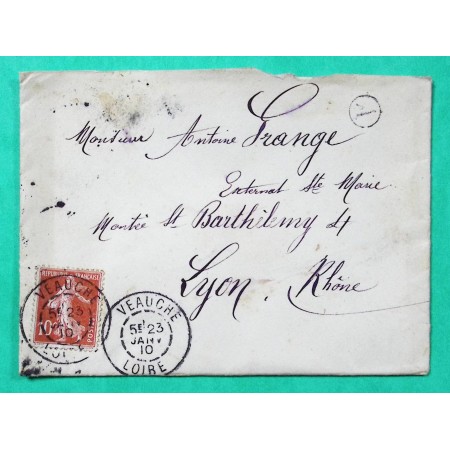 A
Monsieur Antoine Grange
Externat Ste Marie
Montée St Barthélemy 4
Lyon. Rhône
REPUBLIQUE FRANÇAISE
10
POSTES
VEAUCHE
5E 23
10
LOIRE
VEAUCHE
5E 23
JANV
10
LOIRE